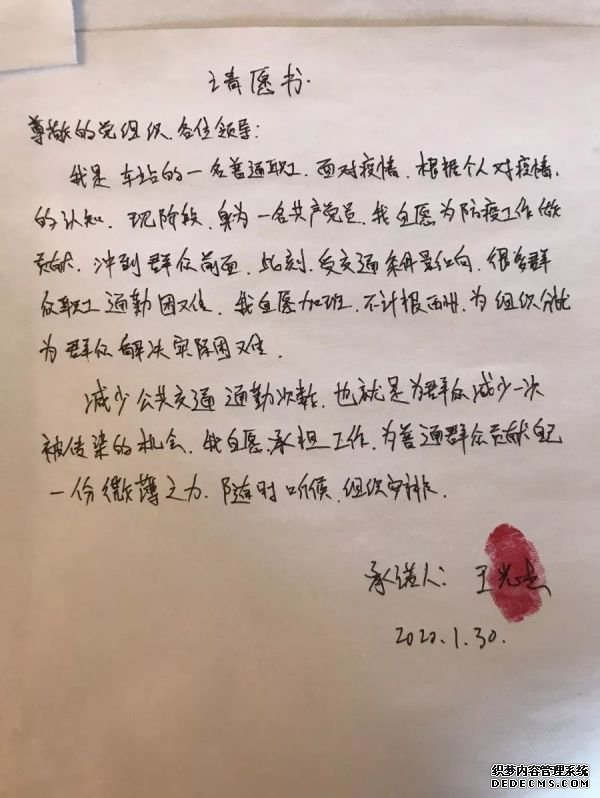 请愿书
尊敬的党组织.各位领导:
我是车站的一名普通职工.面对疫情.根据个人对疫情.
的认知.现阶段.身为一名共产党员.我自愿为防疫工作做
贡献.冲到群众前面.此刻.受交通条件影响.很多群
众职工通勤困难.我自愿加班.不计报酬.为组织分忧
为群众解决实际困难.
减少公共交通通勤次数.也就是为群众减少一次
被传染的机会.我自愿.承担工作.为普通群众贡献自己
一份微薄之力.随时听候.组织安排.
承诺人:王光
2020.1.30.
织梦内容管理系统
DEDECMS.COM